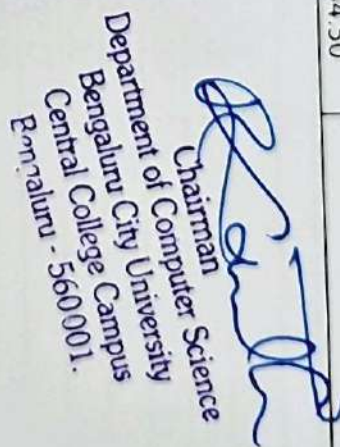 4.50
Chairman
Department of Computer Science
Bengaluru City University
Central College Campus
Bengaluru - 560001.